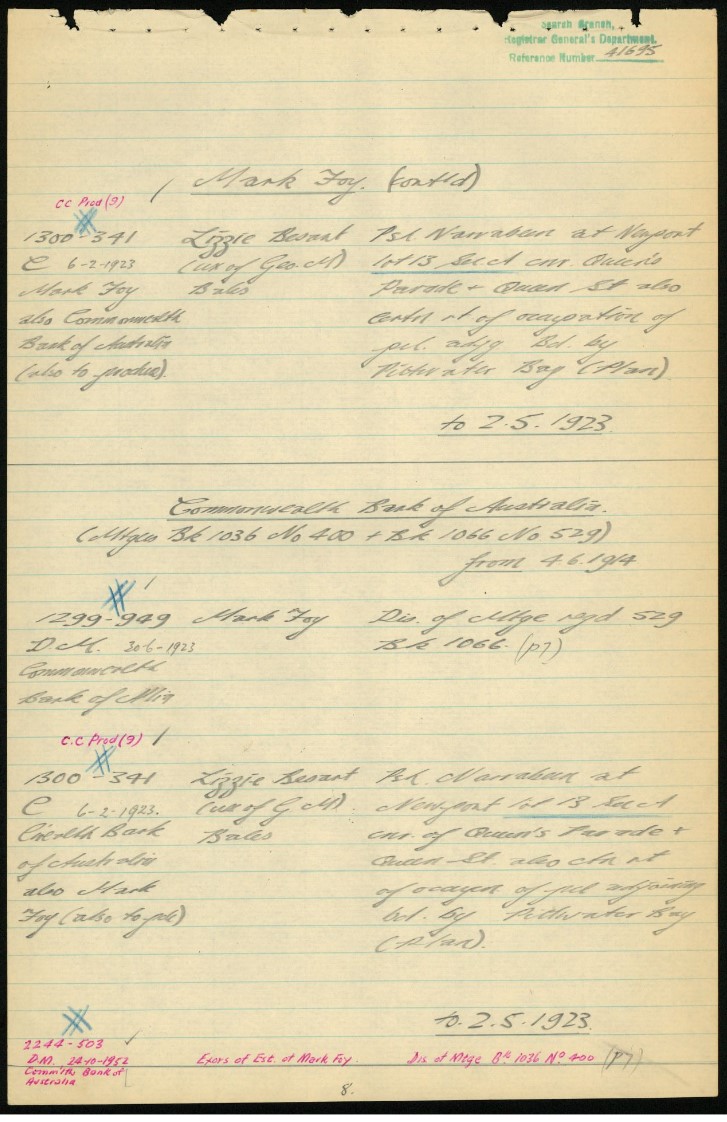 Search Branch,
Registrar General's Department.
Reference Number 41695
Mark Foy. (contd)
CC Prod (9)
1300-341 Lizzie Besant Psh. Narrabeen at Newport
C 6-2-1923 (ux of Geo. M) lot 13 Sec A cnr. Queen's
Mark Foy Bales Parade + Queen St also
also Commonwealth certn rt of occupation of
Bank of Australia pcl. adjg Bd. by
(also to produce). Pittwater Bay (Plan).
to 2.5.1923.
Commonwealth Bank of Australia.
(Mtges Bk 1036 No 400 + Bk 1066 No 529)
from 4.6.1914
1299-949 Mark Foy Dis. of Mtge regd 529
D.M. 30-6-1923 Bk 1066. (p7)
Commonwealth
Bank of
C.C Prod (9)
1300-341 Lizzie Besant Psh. Narrabeen at
C 6-2-1923. (ux of G M) Newport lot 13 Sec A
C'wealth Bank Bales cnr. of Queen's Parade +
of Australia Queen St. also ctn rt
also Mark of occupn of pcl adjoining
Foy (also to pde) bd. by Pittwater Bay
(Plan).
to. 2.5.1923.
2244-503
D.M. 24-10-1952 Exors of Est. of Mark Foy. Dis of Mtge Bk 1036 No 400 (p7)
Comm'lth Bank of
Australia
8.